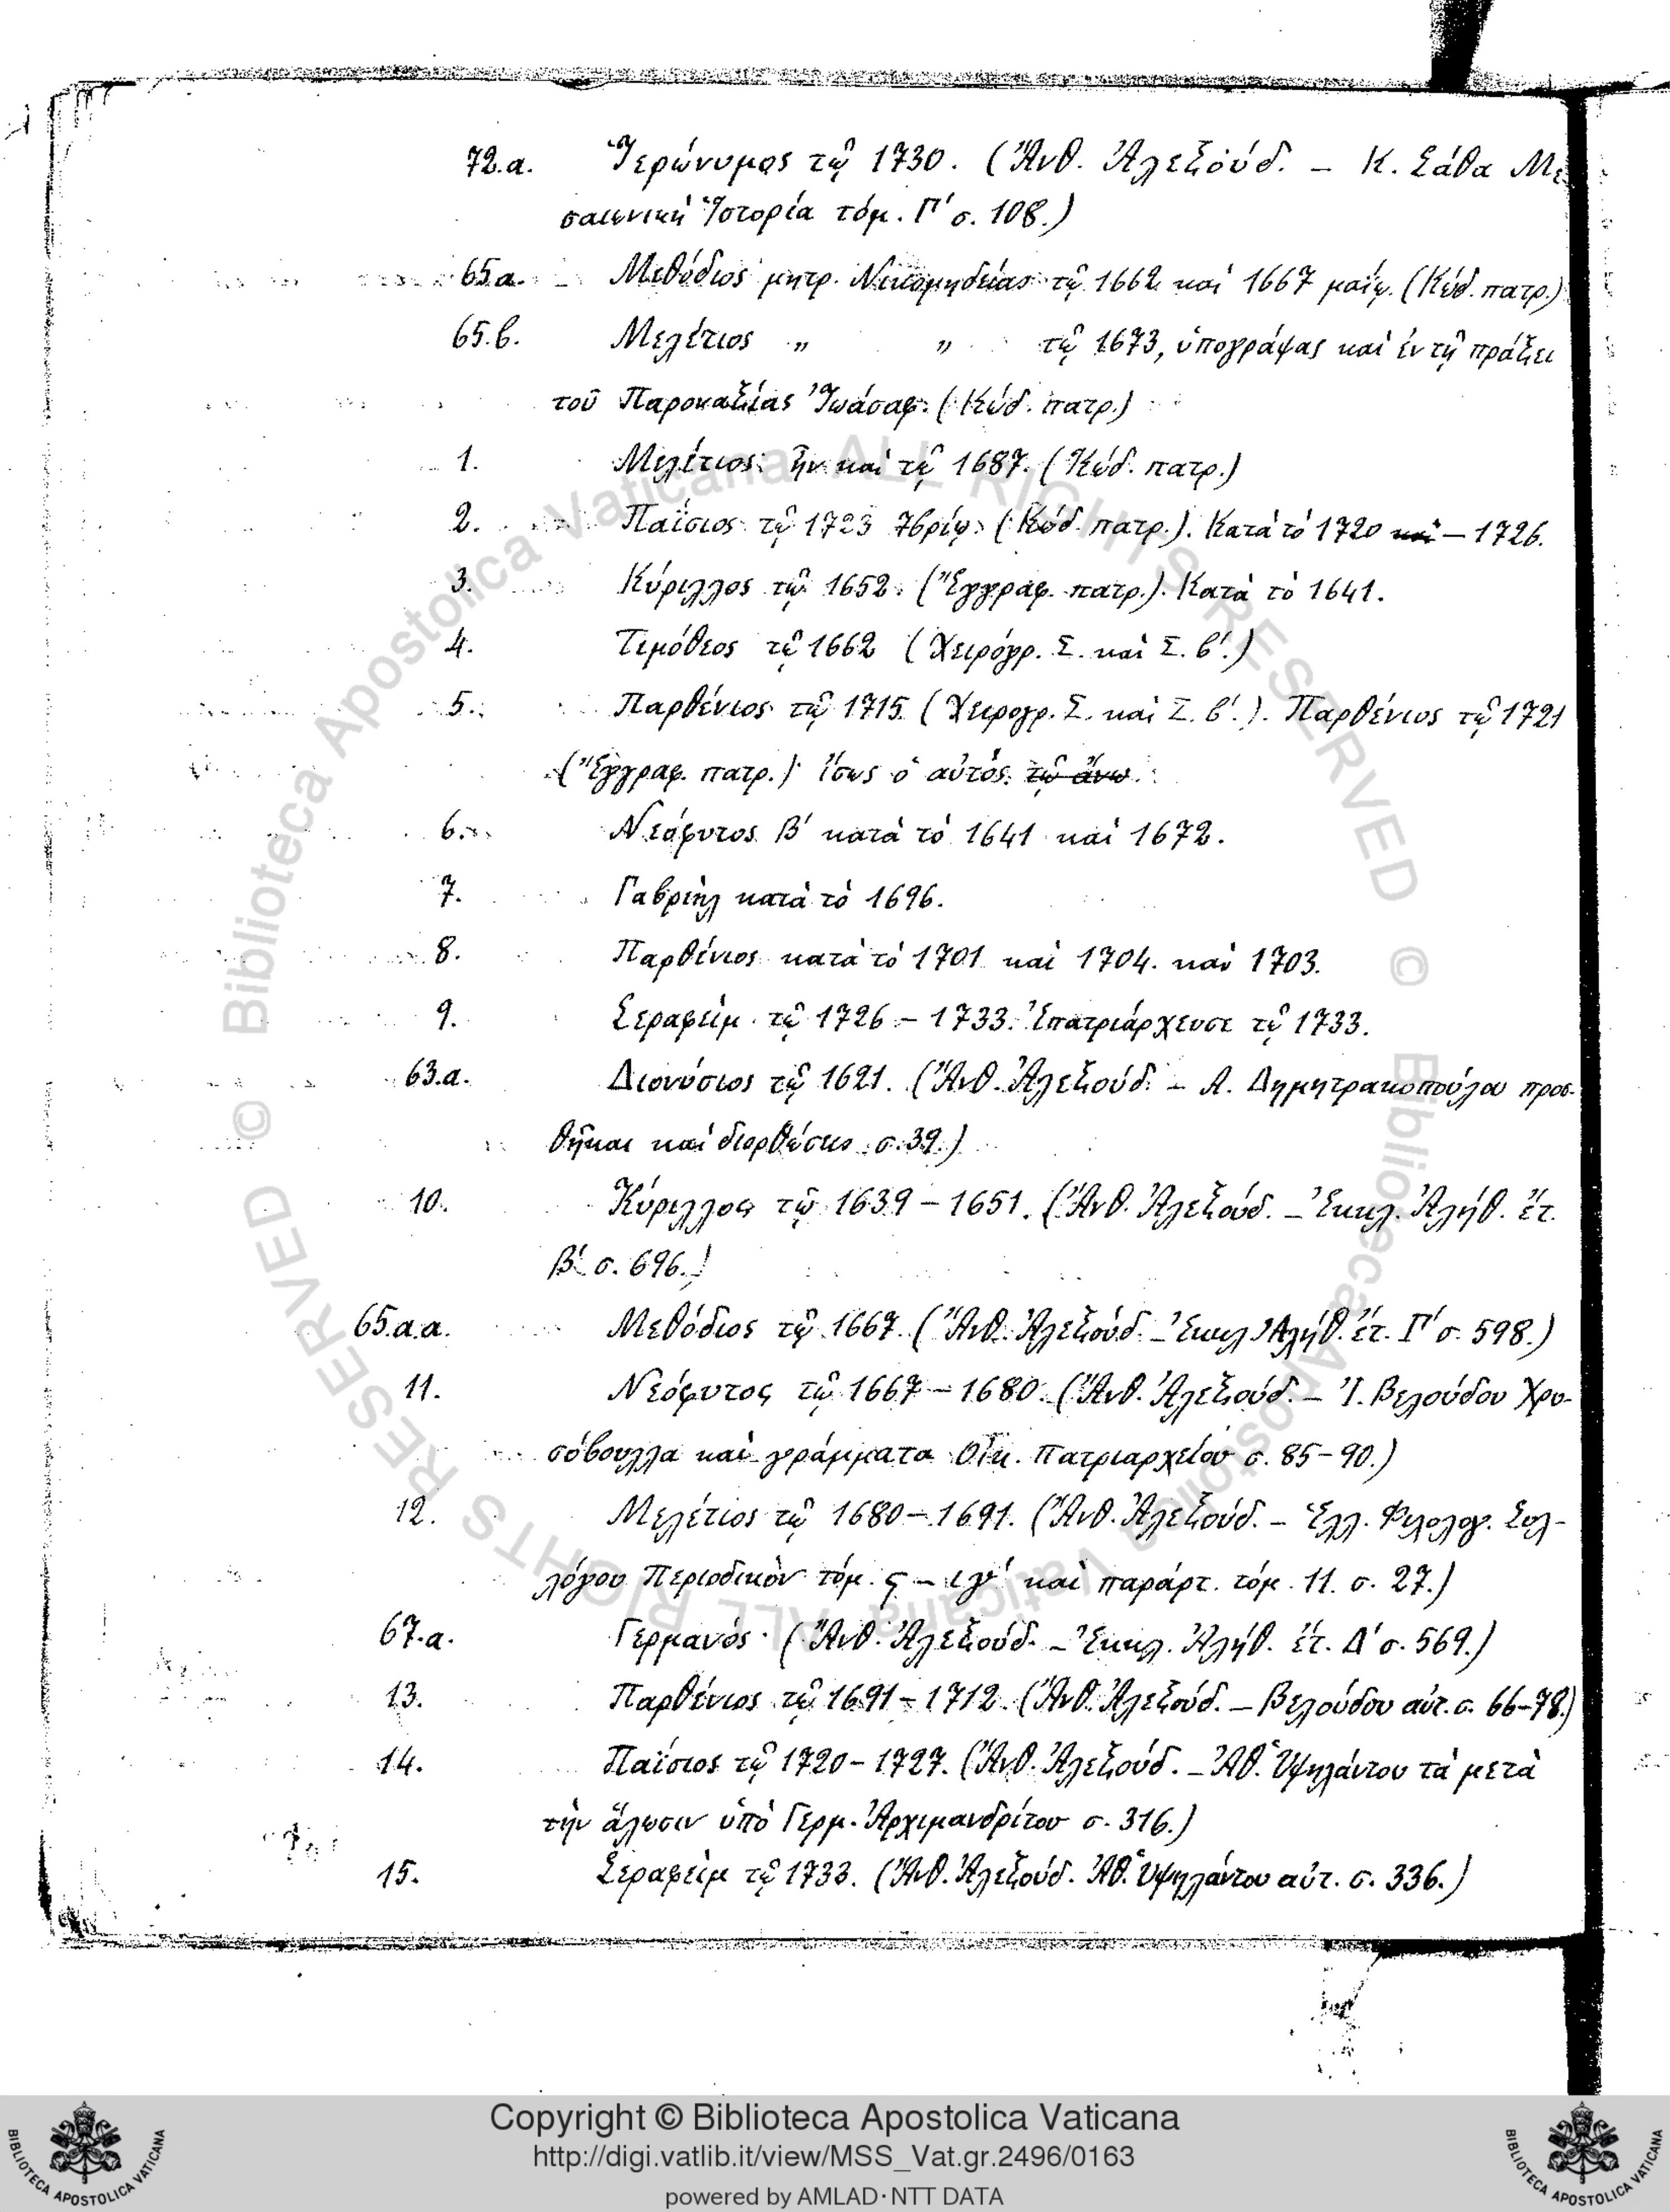 72.α. Ἱερώνυμος τῷ 1730. (Ἄνθ. Ἀλεξούδ. – Κ. Σάθα Με
σαιωνικὴ Ἱστορία τόμ. Γ' σ. 108.)
65.α. Μεθόδιος μητρ. Νικομηδείας τῷ 1662 καὶ 1667 μαΐῳ. (Κώδ. πατρ.)
65.β. Μελέτιος " " τῷ 1673, ὑπογράψας καὶ ἐν τῇ πράξει
τοῦ Παροναξίας Ἰωάσαφ. (Κώδ. πατρ.)
1. Μελέτιος ἦν καὶ τῷ 1687. (Κώδ. πατρ.)
2. Παΐσιος τῷ 1723 7βρίῳ. (Κώδ. πατρ.). Κατὰ τὸ 1720 καὶ – 1726.
3. Κύριλλος τῷ 1652. (Ἔγγραφ. πατρ.). Κατὰ τὸ 1641.
4. Τιμόθεος τῷ 1662 (Χειρόγρ. Σ. καὶ Σ. β'.)
5. Παρθένιος τῷ 1715 (Χειρογρ. Σ. καὶ Σ. β'.). Παρθένιος τῷ 1721
(Ἔγγραφ. πατρ.) ἴσως ὁ αὐτός. τῷ ἄνω.
6. Νεόφυτος Β' κατὰ τὸ 1641 καὶ 1672.
7. Γαβριὴλ κατὰ τὸ 1696.
8. Παρθένιος κατὰ τὸ 1701 καὶ 1704. καὶ 1703.
9. Σεραφεὶμ τῷ 1726 – 1733. Ἐπατριάρχευσε τῷ 1733.
63.α. Διονύσιος τῷ 1621. (Ἄνθ. Ἀλεξούδ. – Α. Δημητρακοπούλου προσ-
θῆκαι καὶ διορθώσεις σ. 39.)
10. Κύριλλος τῷ 1639 – 1651. (Ἄνθ. Ἀλεξούδ. – Ἐκκλ. Ἀλήθ. ἔτ.
Β' σ. 696.)
65.α.α. Μεθόδιος τῷ 1667. (Ἄνθ. Ἀλεξούδ. – Ἐκκλ. Ἀλήθ. ἔτ. Γ' σ. 598.)
11. Νεόφυτος τῷ 1667 – 1680. (Ἄνθ. Ἀλεξούδ. – Ἰ. Βελούδου Χρυ-
σόβουλλα καὶ γράμματα Οἰκ. Πατριαρχείου σ. 85–90.)
12. Μελέτιος τῷ 1680 – 1691. (Ἄνθ. Ἀλεξούδ. – Ἑλλ. Φιλολογ. Συλ-
λόγου Περιοδικὸν τόμ. ς – ιγ' καὶ παράρτ. τόμ. 11. σ. 27.)
67.α. Γερμανός. (Ἄνθ. Ἀλεξούδ. – Ἐκκλ. Ἀλήθ. ἔτ. Δ' σ. 569.)
13. Παρθένιος τῷ 1691 – 1712. (Ἄνθ. Ἀλεξούδ. – Βελούδου αὐτ. σ. 66–78.)
14. Παΐσιος τῷ 1720 – 1727. (Ἄνθ. Ἀλεξούδ. – Ἀθ. Ὑψηλάντου τὰ μετὰ
τὴν ἅλωσιν ὑπὸ Γερμ. Ἀρχιμανδρίτου σ. 316.)
15. Σεραφεὶμ τῷ 1733. (Ἄνθ. Ἀλεξούδ. Ἀθ. Ὑψηλάντου αὐτ. σ. 336.)
© Biblioteca Apostolica Vaticana ALL RIGHTS RESERVED © Biblioteca Apostolica Vaticana ALL RIGHTS RESERVED
Copyright © Biblioteca Apostolica Vaticana
http://digi.vatlib.it/view/MSS_Vat.gr.2496/0163
powered by AMLAD·NTT DATA
BIBLIOTECA APOSTOLICA VATICANA
BIBLIOTECA APOSTOLICA VATICANA